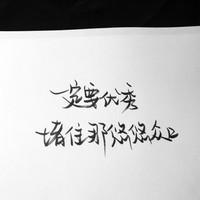 一定要优秀
堵住那悠悠众口